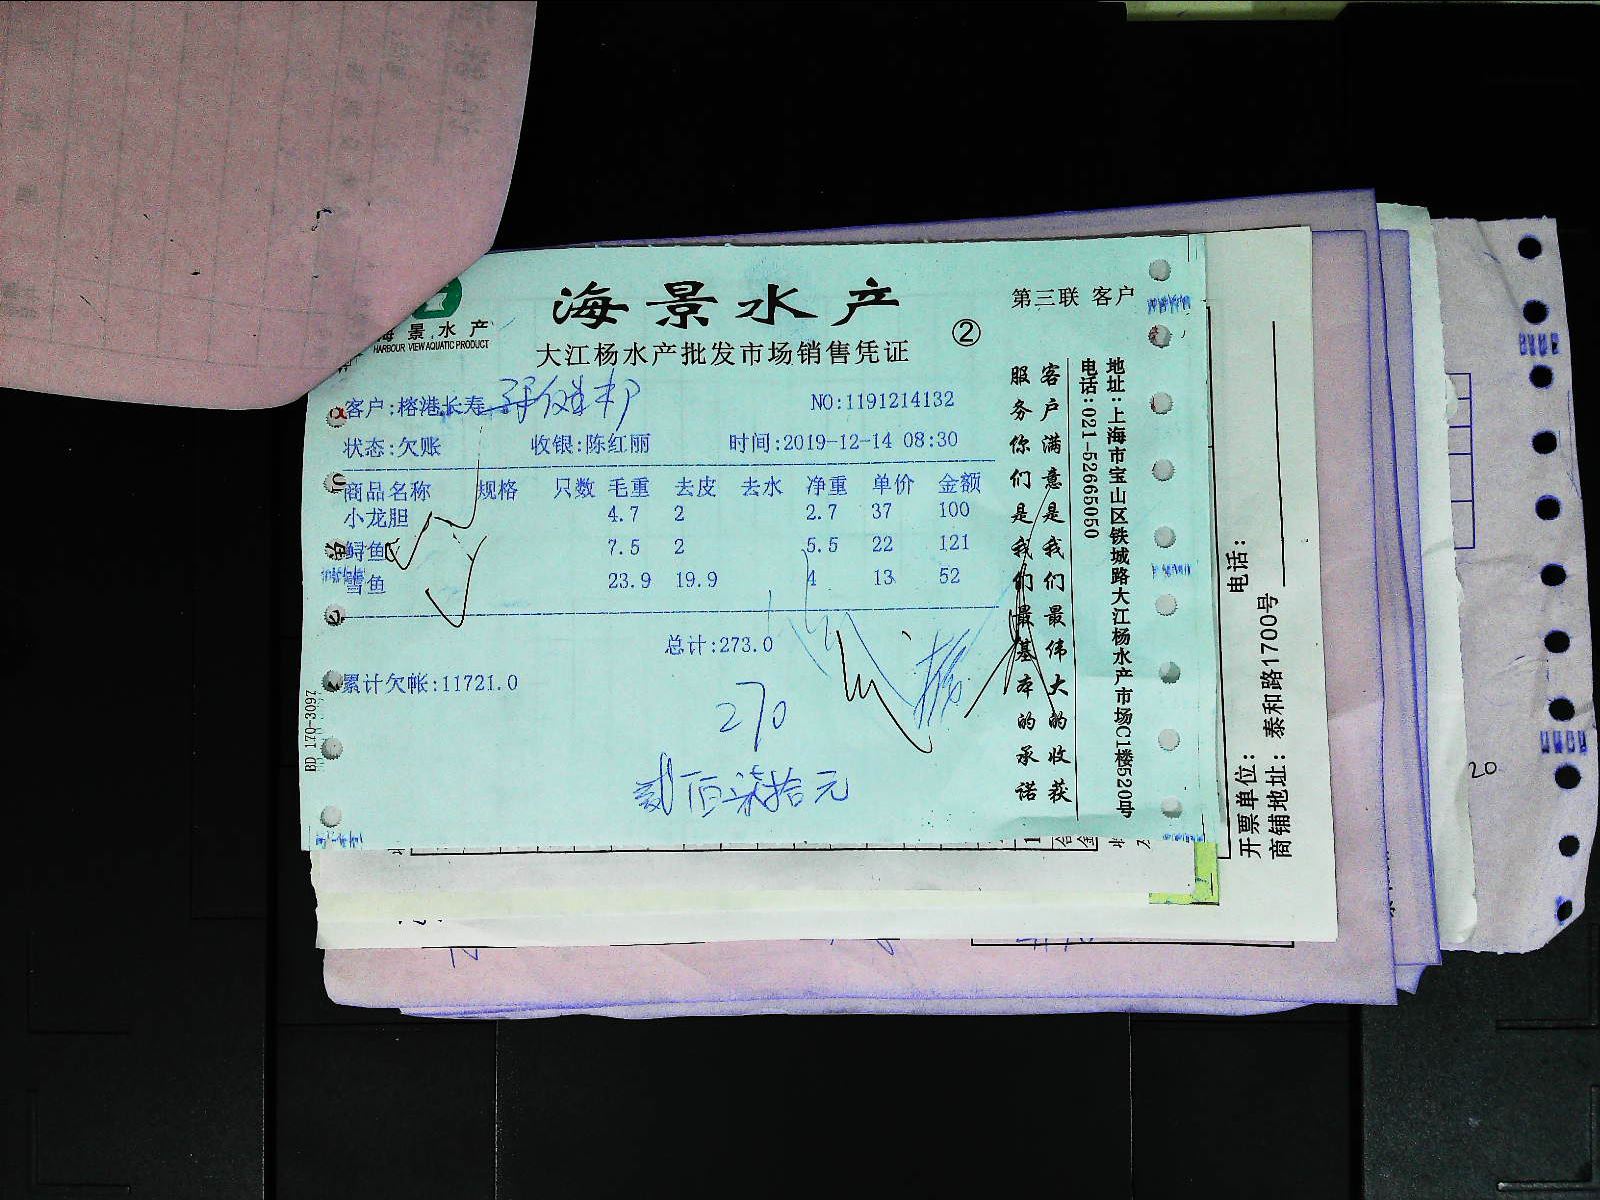 海景水产
HARBOUR VIEW AQUATIC PRODUCT
海景水产
大江杨水产批发市场销售凭证
②
第三联 客户
客户:榕港长寿
NO:1191214132
状态:欠账 收银:陈红丽 时间:2019-12-14 08:30
商品名称 规格 只数 毛重 去皮 去水 净重 单价 金额
小龙胆 4.7 2 2.7 37 100
鲟鱼 7.5 2 5.5 22 121
雪鱼 23.9 19.9 4 13 52
总计:273.0
累计欠帐:11721.0
270
贰佰柒拾元
客户满意是我们最伟大的收获
服务你们是我们最基本的承诺
地址:上海市宝山区铁城路大江杨水产市场C1楼520号
电话:021-52665050
BD 170-3097
电话:
开票单位:
商铺地址: 泰和路1700号
20